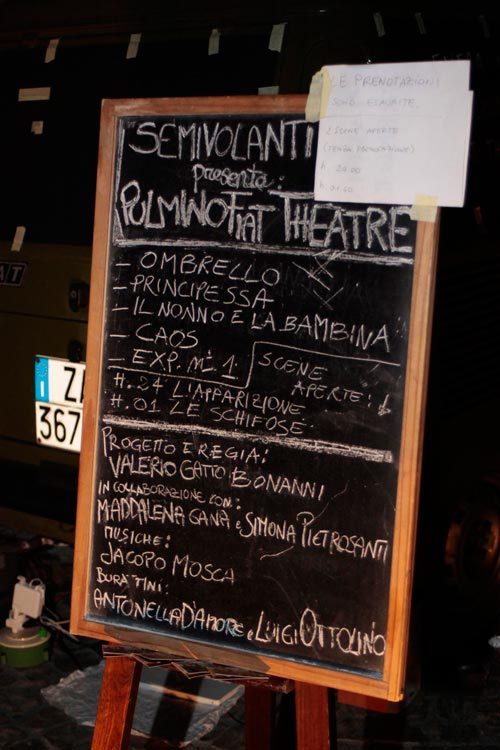 LE PRENOTAZIONI
SONO ESAURITE.
2 SCENE APERTE
(SENZA PRENOTAZIONE)
h. 24.00
h. 01.00
SEMIVOLANTI
presenta:
PULMINOFIAT THEATRE
- OMBRELLO
- PRINCIPESSA
- IL NONNO E LA BAMBINA
- CAOS
- EXP. N° 1
SCENE
APERTE:
H. 24 L'APPARIZIONE
H. 01 LE SCHIFOSE
PROGETTO E REGIA:
VALERIO GATTO BONANNI
IN COLLABORAZIONE CON:
MADDALENA GANA e SIMONA PIETROSANTI
MUSICHE:
JACOPO MOSCA
BURATTINI:
ANTONELLA D'AMORE e LUIGI OTTOLINO
Z
367